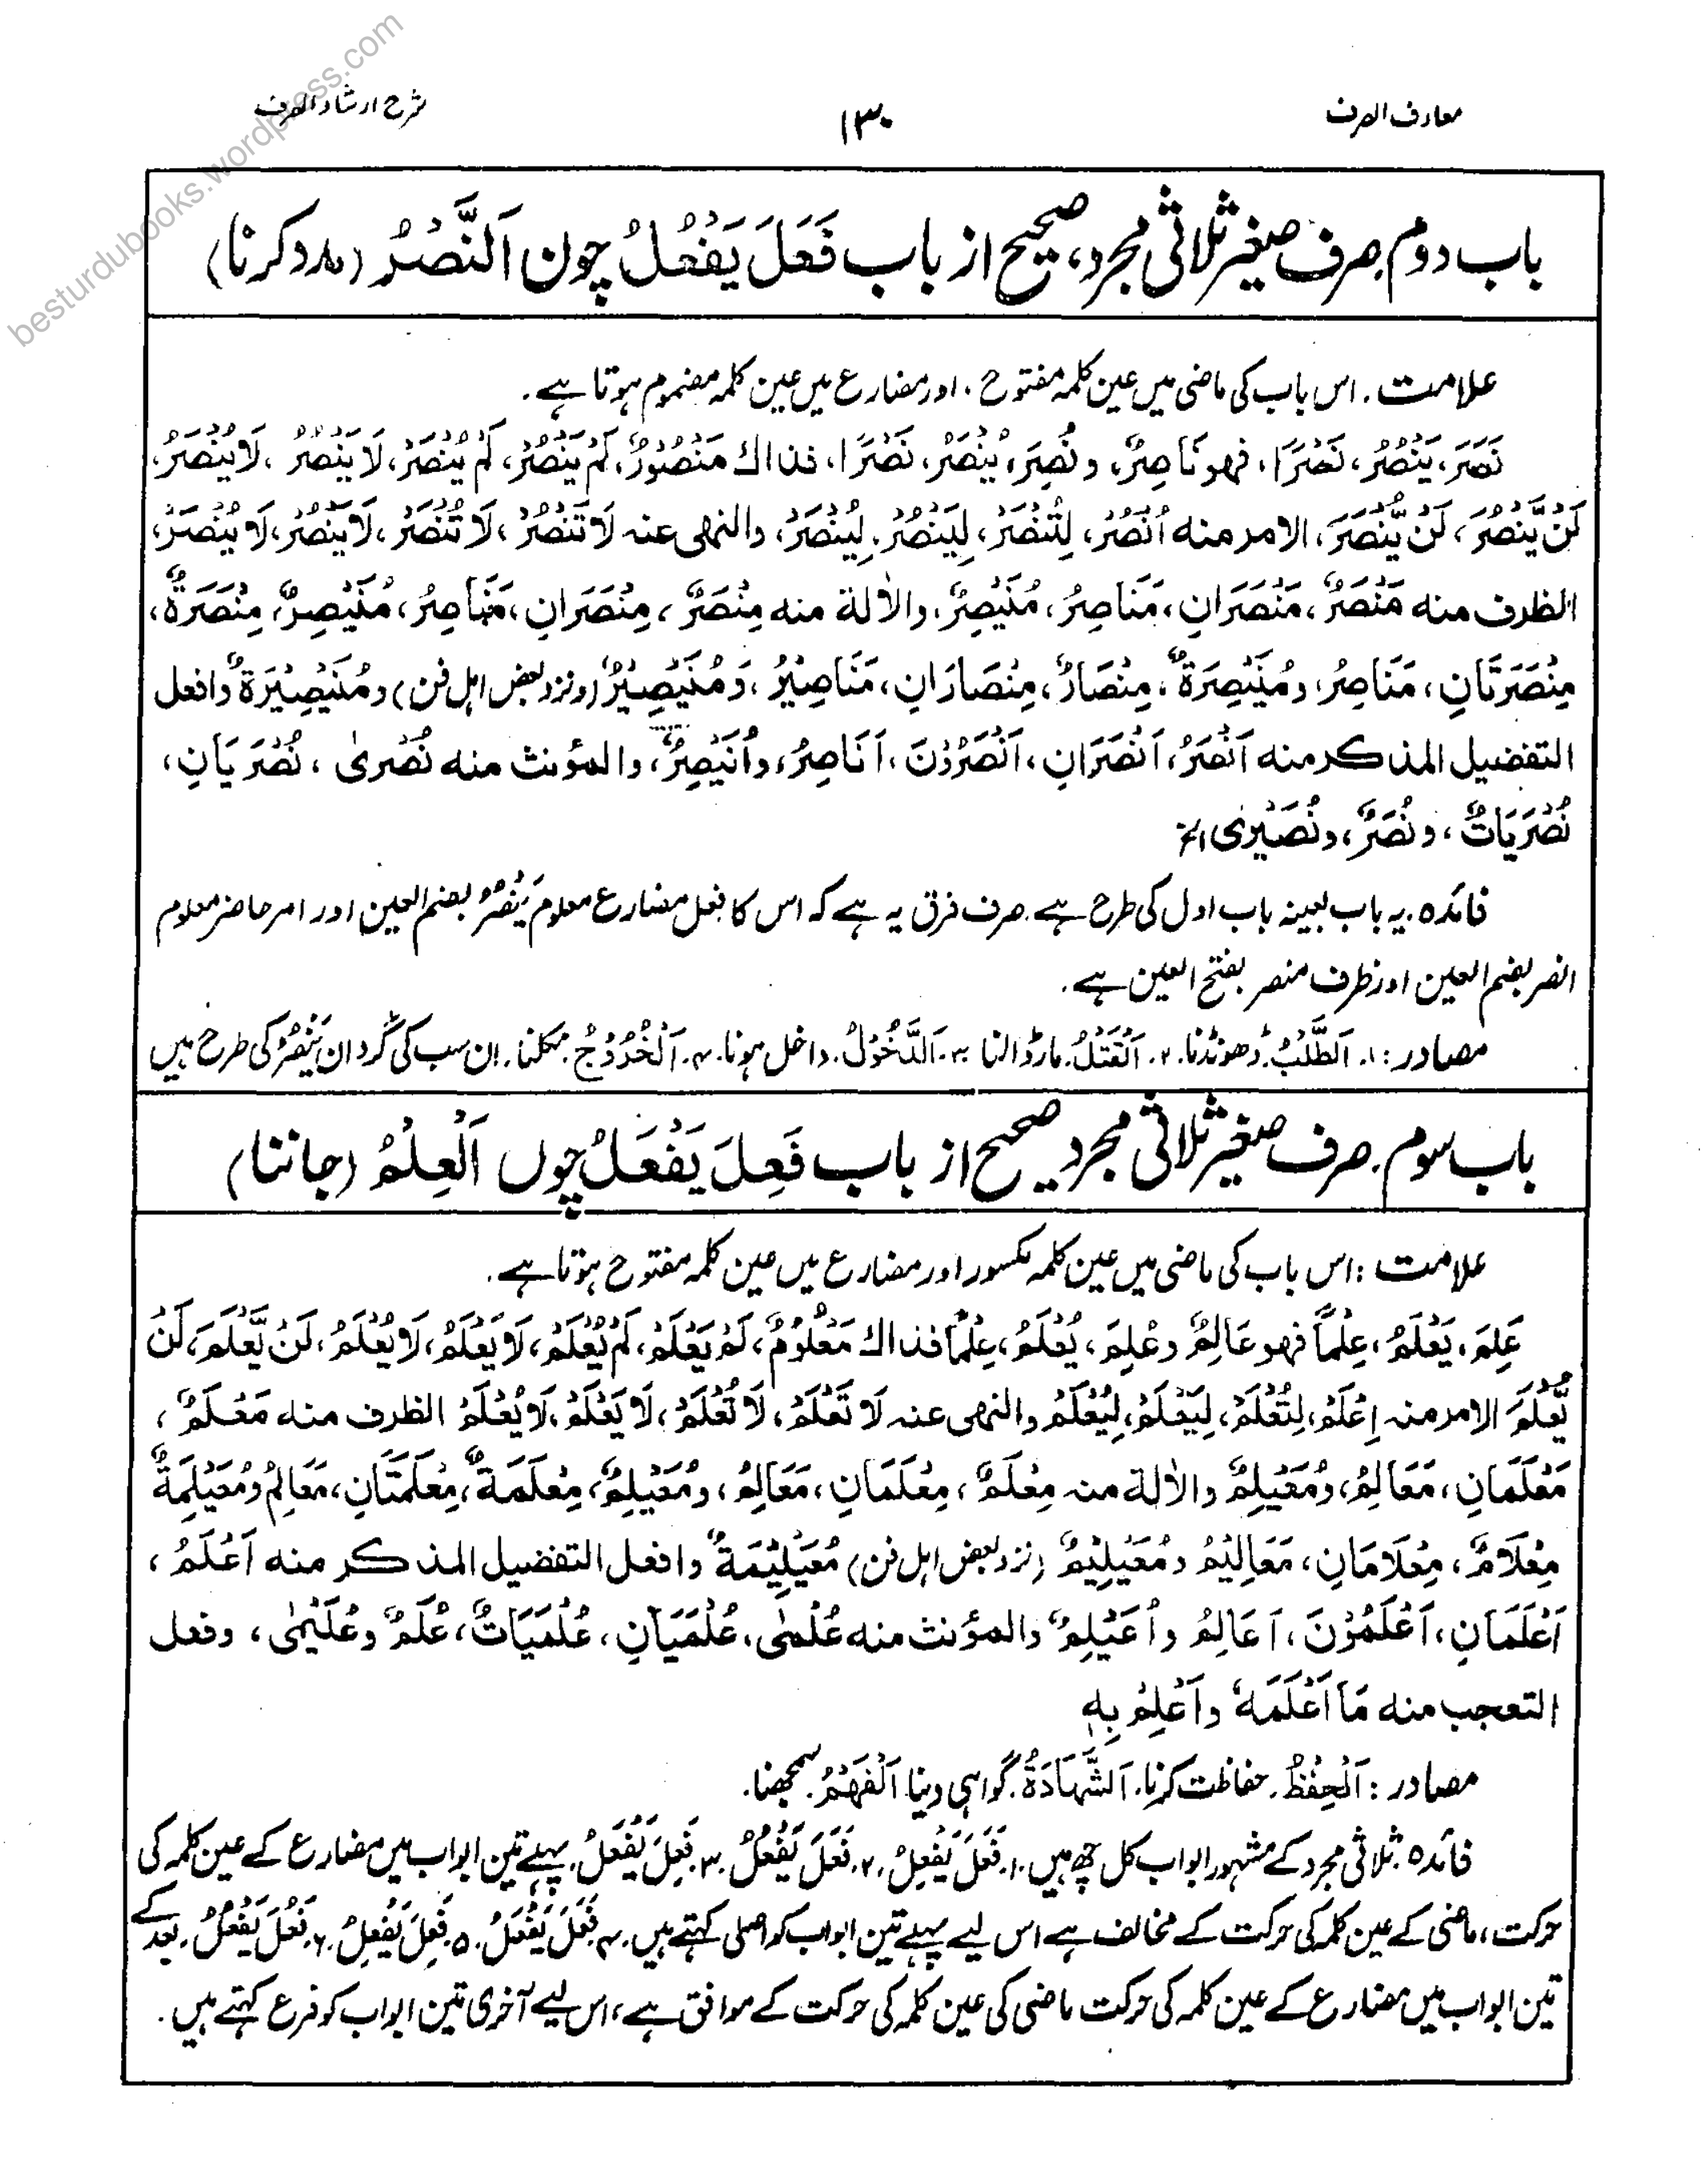 معارف الصرف
۱۳۰
شرح ارشاد الصرف
besturdubooks.wordpress.com
باب دوم. صرف صغیر ثلاثی مجرد، صحیح از باب فَعَلَ یَفْعُلُ چون اَلنَّصْرُ (مدد کرنا)
علامت. اس باب کی ماضی میں عین کلمہ مفتوح، اور مضارع میں عین کلمہ مضموم ہوتا ہے.
نَصَرَ، یَنْصُرُ، نَصْرًا، فهو نَاصِرٌ، و نُصِرَ، یُنْصَرُ، نَصْرًا، فذاك مَنْصُوْرٌ، لَمْ یَنْصُرْ، لَمْ یُنْصَرْ، لَا یَنْصُرُ، لَا یُنْصَرُ،
لَنْ یَّنْصُرَ، لَنْ یُّنْصَرَ، الامر منه اُنْصُرْ، لِتُنْصَرْ، لِیَنْصُرْ، لِیُنْصَرْ، والنهی عنه لَا تَنْصُرْ، لَا تُنْصَرْ، لَا یَنْصُرْ، لَا یُنْصَرْ،
الظرف منه مَنْصَرٌ، مَنْصَرَانِ، مَنَاصِرُ، مُنَیْصِرٌ، والاٰلة منه مِنْصَرٌ، مِنْصَرَانِ، مَنَاصِرُ، مُنَیْصِرٌ، مِنْصَرَةٌ،
مِنْصَرَتَانِ، مَنَاصِرُ، ومُنَیْصِرَةٌ، مِنْصَارٌ، مِنْصَارَانِ، مَنَاصِیْرُ، وَمُنَیْصِیْرٌ (ونزد بعض اہل فن) ومُنَیْصِیْرَةٌ وافعل
التفضیل المذکر منه اَنْصَرُ، اَنْصَرَانِ، اَنْصَرُوْنَ، اَنَاصِرُ، واُنَیْصِرٌ، والمؤنث منه نُصْرىٰ، نُصْرَیَانِ،
نُصْرَیَاتٌ، و نُصَرٌ، و نُصَیْرٰی الخ
فائدہ. یہ باب بعینہ باب اول کی طرح ہے. صرف فرق یہ ہے کہ اس کا فعل مضارع معلوم یَنْصُرُ بضم العین اور امر حاضر معلوم
انصر بضم العین اور ظرف منصر بفتح العین ہے.
مصادر: ۱. اَلطَّلَبُ. ڈھونڈنا. ۲. اَلْقَتْلُ. مار ڈالنا ۳. اَلدَّخُوْلُ. داخل ہونا. ۴. اَلْخُرُوْجُ. نکلنا. ان سب کی گردان یَنْصُرُ کی طرح ہیں
باب سوم. صرف صغیر ثلاثی مجرد صحیح از باب فَعِلَ یَفْعَلُ چوں اَلْعِلْمُ (جاننا)
علامت: اس باب کی ماضی میں عین کلمہ مکسور اور مضارع میں عین کلمہ مفتوح ہوتا ہے.
عَلِمَ، یَعْلَمُ، عِلْمًا فهو عَالِمٌ وعُلِمَ، یُعْلَمُ، عِلْمًا فذاك مَعْلُوْمٌ، لَمْ یَعْلَمْ، لَمْ یُعْلَمْ، لَا یَعْلَمُ، لَا یُعْلَمُ، لَنْ یَّعْلَمَ، لَنْ
یُّعْلَمَ الامر منه اِعْلَمْ، لِتُعْلَمْ، لِیَعْلَمْ، لِیُعْلَمْ والنهی عنه لَا تَعْلَمْ، لَا تُعْلَمْ، لَا یَعْلَمْ، لَا یُعْلَمْ الظرف منه مَعْلَمٌ،
مَعْلَمَانِ، مَعَالِمُ، ومُعَیْلِمٌ والاٰلة منه مِعْلَمٌ، مِعْلَمَانِ، مَعَالِمُ، ومُعَیْلِمٌ، مِعْلَمَةٌ، مِعْلَمَتَانِ، مَعَالِمُ ومُعَیْلِمَةٌ
مِعْلَامٌ، مِعْلَامَانِ، مَعَالِیْمُ ومُعَیْلِیْمٌ (نزد بعض اہل فن) مُعَیْلِیْمَةٌ وافعل التفضیل المذکر منه اَعْلَمُ،
اَعْلَمَانِ، اَعْلَمُوْنَ، اَعَالِمُ واُعَیْلِمٌ والمؤنث منه عُلْمٰی، عُلْمَیَانِ، عُلْمَیَاتٌ، عُلَمٌ وعُلَیْمٰی، وفعل
التعجب منه مَا اَعْلَمَهٗ واَعْلِمْ بِهٖ
مصادر: اَلْحِفْظُ. حفاظت کرنا. اَلشَّهَادَةُ. گواہی دینا اَلْفَهْمُ. سمجھنا.
فائدہ. ثلاثی مجرد کے مشہور ابواب کل چھ ہیں. ۱. فَعَلَ یَفْعِلُ. ۲. فَعَلَ یَفْعُلُ. ۳. فَعِلَ یَفْعَلُ. پہلے تین ابواب میں مضارع کے عین کلمہ کی
حرکت، ماضی کے عین کلمہ کی حرکت کے مخالف ہے اس لیے پہلے تین ابواب کو اصلی کہتے ہیں. ۴. فَعَلَ یَفْعَلُ. ۵. فَعِلَ یَفْعِلُ. ۶. فَعُلَ یَفْعُلُ. بعد کے
تین ابواب میں مضارع کے عین کلمہ کی حرکت ماضی کی عین کلمہ کی حرکت کے موافق ہے، اس لیے آخری تین ابواب کو فرع کہتے ہیں.